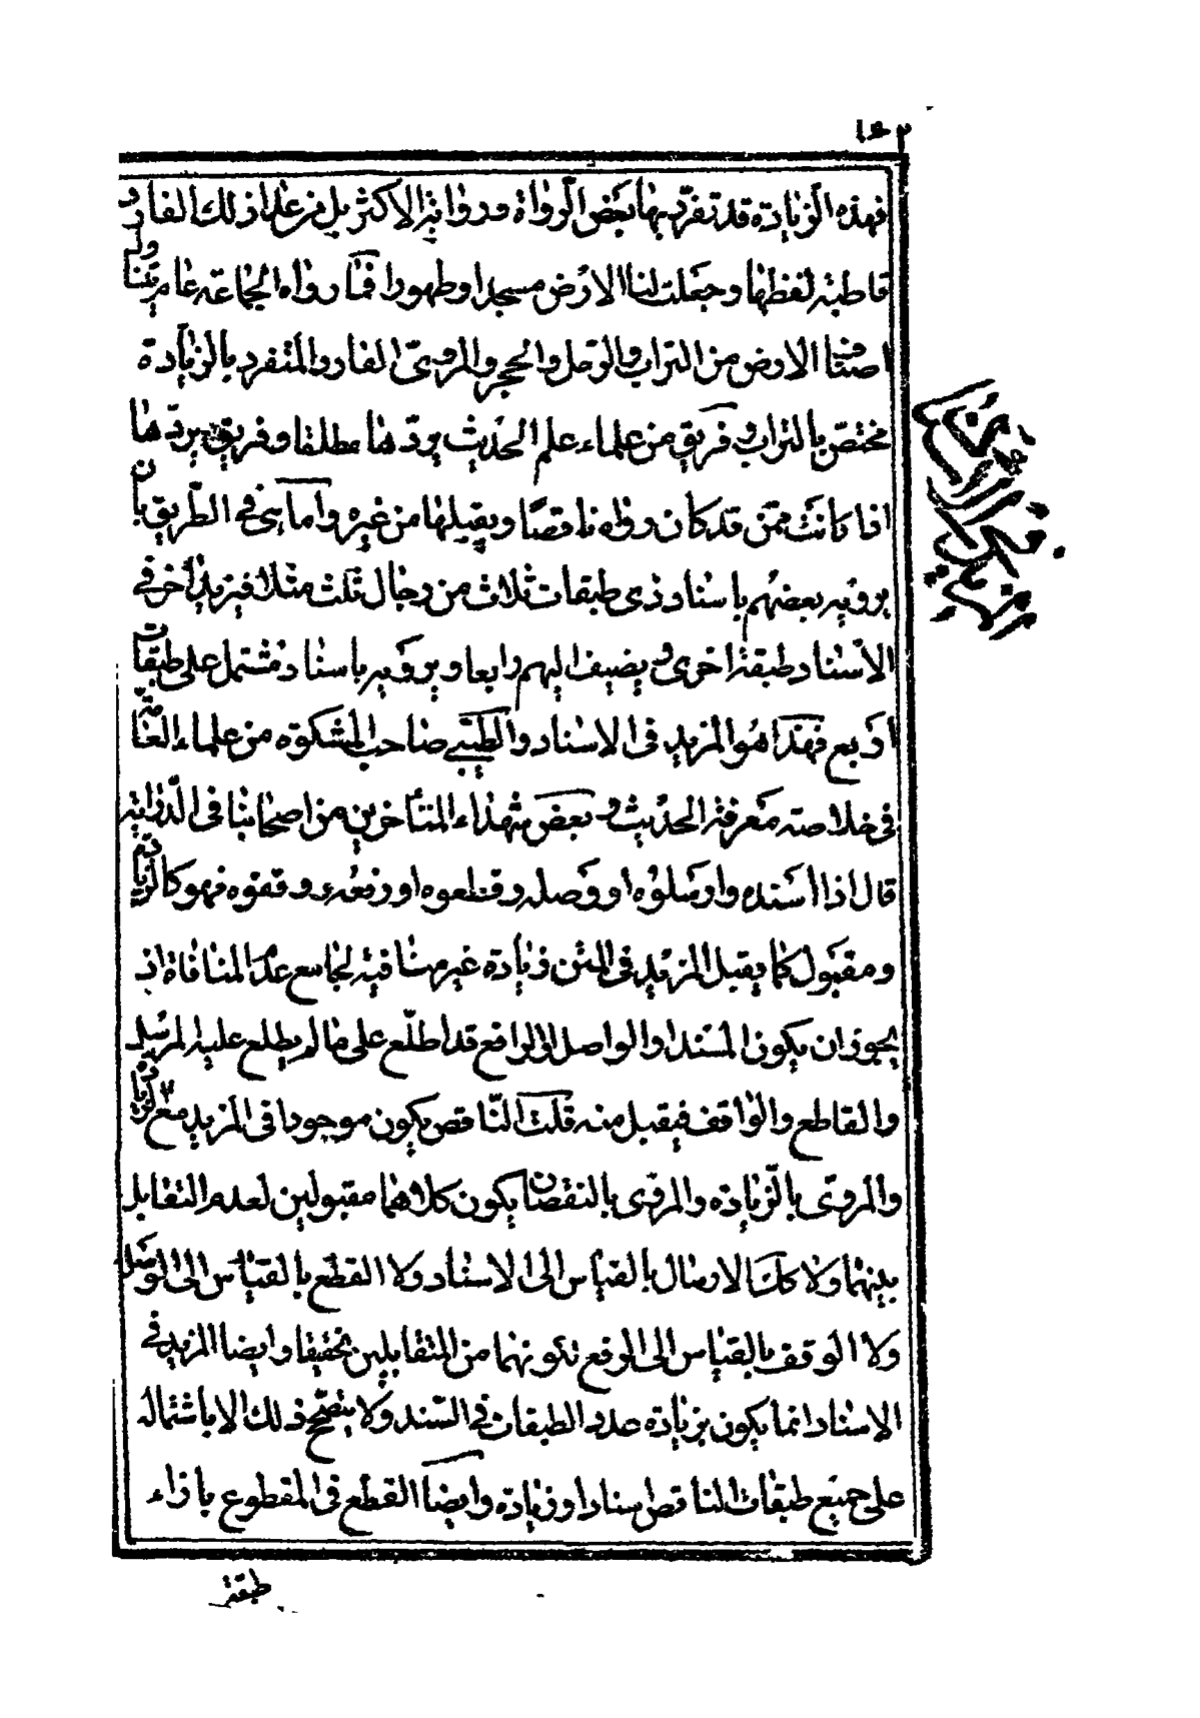 ١٦٢
فهذه الزيادة قد تفرد بها بعض الرواة ورواية الاكثر بل من عدا ذلك الفارد
قاطبة لفظها وجعلت لنا الارض مسجدا وطهورا فما رواه الجماعة عام يتناول
اصناف الارض من التراب والرمل والحجر والمروى الفارد المتفرد بالزيادة
مختص بالتراب وفريق من علماء علم الحديث يردها مطلقا وفريق يردها
اذا كانت ممن قد كان رواه ناقصا ويقبلها من غيره واما في الطريق بان
يرويه بعضهم باسناد ذى طبقات ثلاث من رجال ثلث مثلا فيزيد اخر فى
الاسناد طبقة اخرى ويضيف اليهم رابعا ويرويه باسناد مشتمل على طبقات
اربع فهذا هو المزيد فى الاسناد والطيبى صاحب المشكوة من علماء العامة
فى خلاصته معرفة الحديث وبعض شهداء المتأخرين من اصحابنا فى الدراية
قال اذا اسنده وارسلوه او وصله وقطعوه او رفعه ووقفوه فهو كالزيادة
ومقبول كما يقبل المزيد فى المتن زيادة غير منافية لجامع عدم المنافاة اذ
يجوز ان يكون المسند او الواصل او الرافع قد اطلع على ما لم يطلع عليه المرسل
والقاطع والواقف فيقبل منه قلت الناقص يكون موجودا فى المزيد مع الزيادة
والمروى بالزيادة والمروى بالنقصان يكون كلاهما مقبولين لعدم التقابل
بينهما ولا كذلك الارسال بالقياس الى الاسناد ولا القطع بالقياس الى الوصل
ولا الوقف بالقياس الى الرفع لكونهما من المتقابلين تحقيقا وايضا المزيد فى
الاسناد انما يكون بزيادة عدد الطبقات فى السند ولا يتصحح ذلك الا باشتماله
على جميع طبقات الناقص اسنادا وزيادة وايضا القطع فى المقطوع بازاء
طبقة